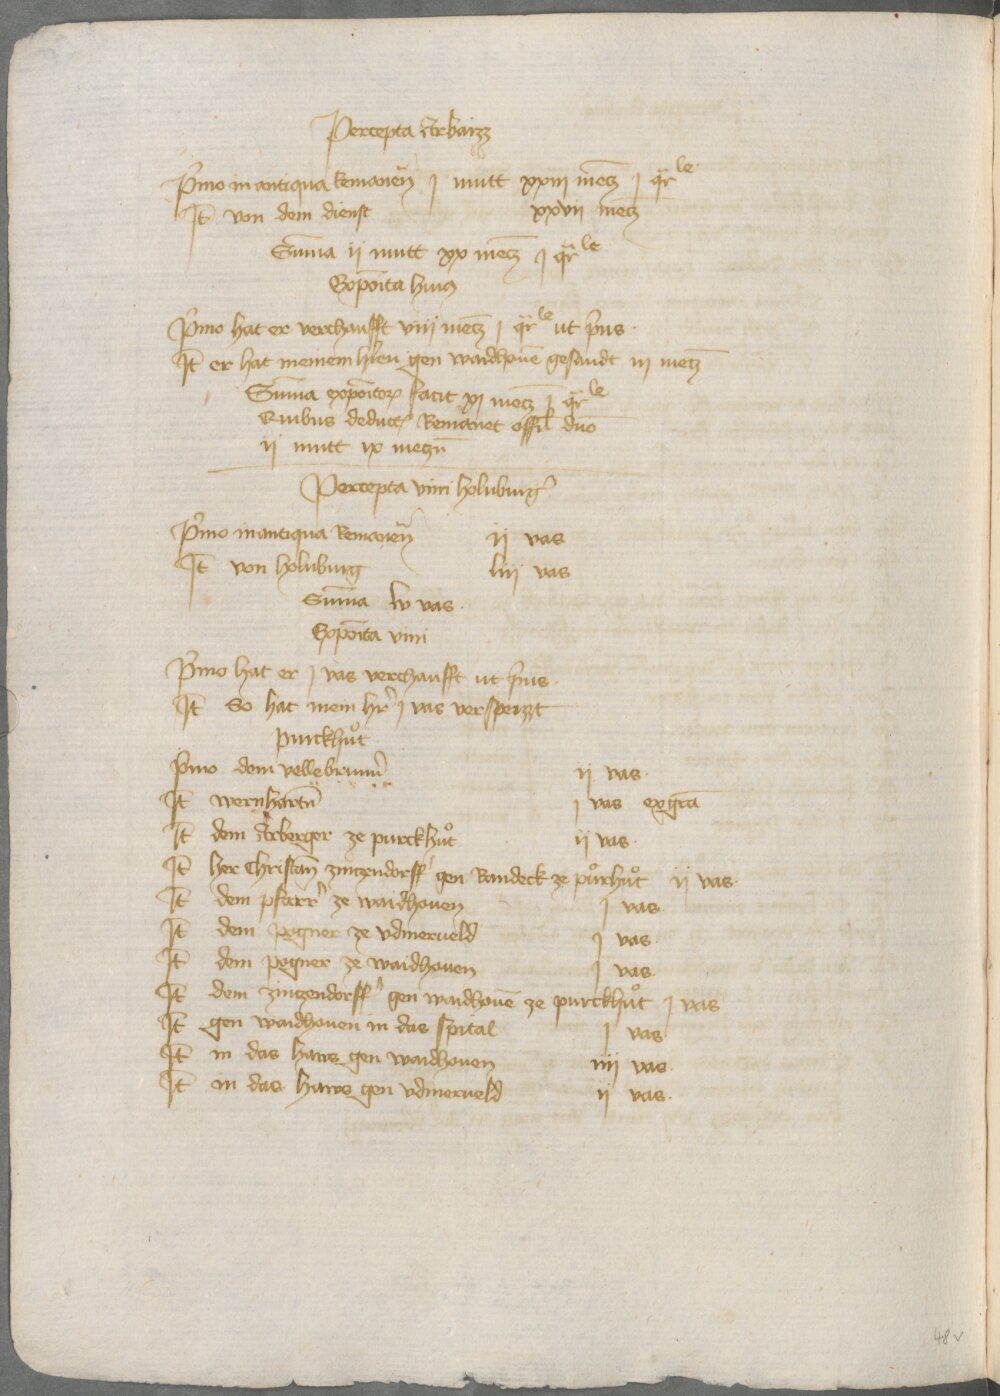 Percepta Arbaizz
P̃mo in antiqua Remanen̄ j mutt xxiij mecz̄ j qr̄le
It̄ von dem dienst xxvii mecz̄
Sum̄a ij mutt xx mecz̄ j qr̄le
Expoīta huiꝰ
P̃mo hat er verchaufft viij mecz̄ j qr̄le ut p̃us
It̄ er hat meinem hr̄en gen waidhouē gesandt iij mecz̄
Sum̄a expoīto℞ facit xj mecz̄ j qr̄le
Quibus deduct̄ Remanet offil̄ duo
ij mutt ix meczn̄
Percepta vini holnburg
P̃mo in antiqua Remanen̄ ij vas
It̄ von holnburg liij vas
Sum̄a lv vas
Expoīta vini
P̃mo hat er j vas verchaufft ut p̃us
It̄ So hat mein hr̄ j vas verspeizt
purckhůt
P̃mo dem vellebrunn̄ ij vas
It̄ wernhartn̄ j vas ex gr̄a
It̄ dem Arberger ze purckhůt ij vas
It̄ her Christan̄ zinczendorff̄ gen Randeck ze půrhůt ij vas
It̄ dem pfarr̄ ze waidhouen j vas
It̄ dem pogner ze vdmerueld j vas
It̄ dem pogner ze waidhouen j vas
It̄ dem zinczendorff̄ gen waidhouē ze purckhůt j vas
It̄ gen waidhouen in das spital j vas
It̄ in das haws gen waidhouen iiij vas
It̄ in das haws gen vdmerueld ij vas
48v